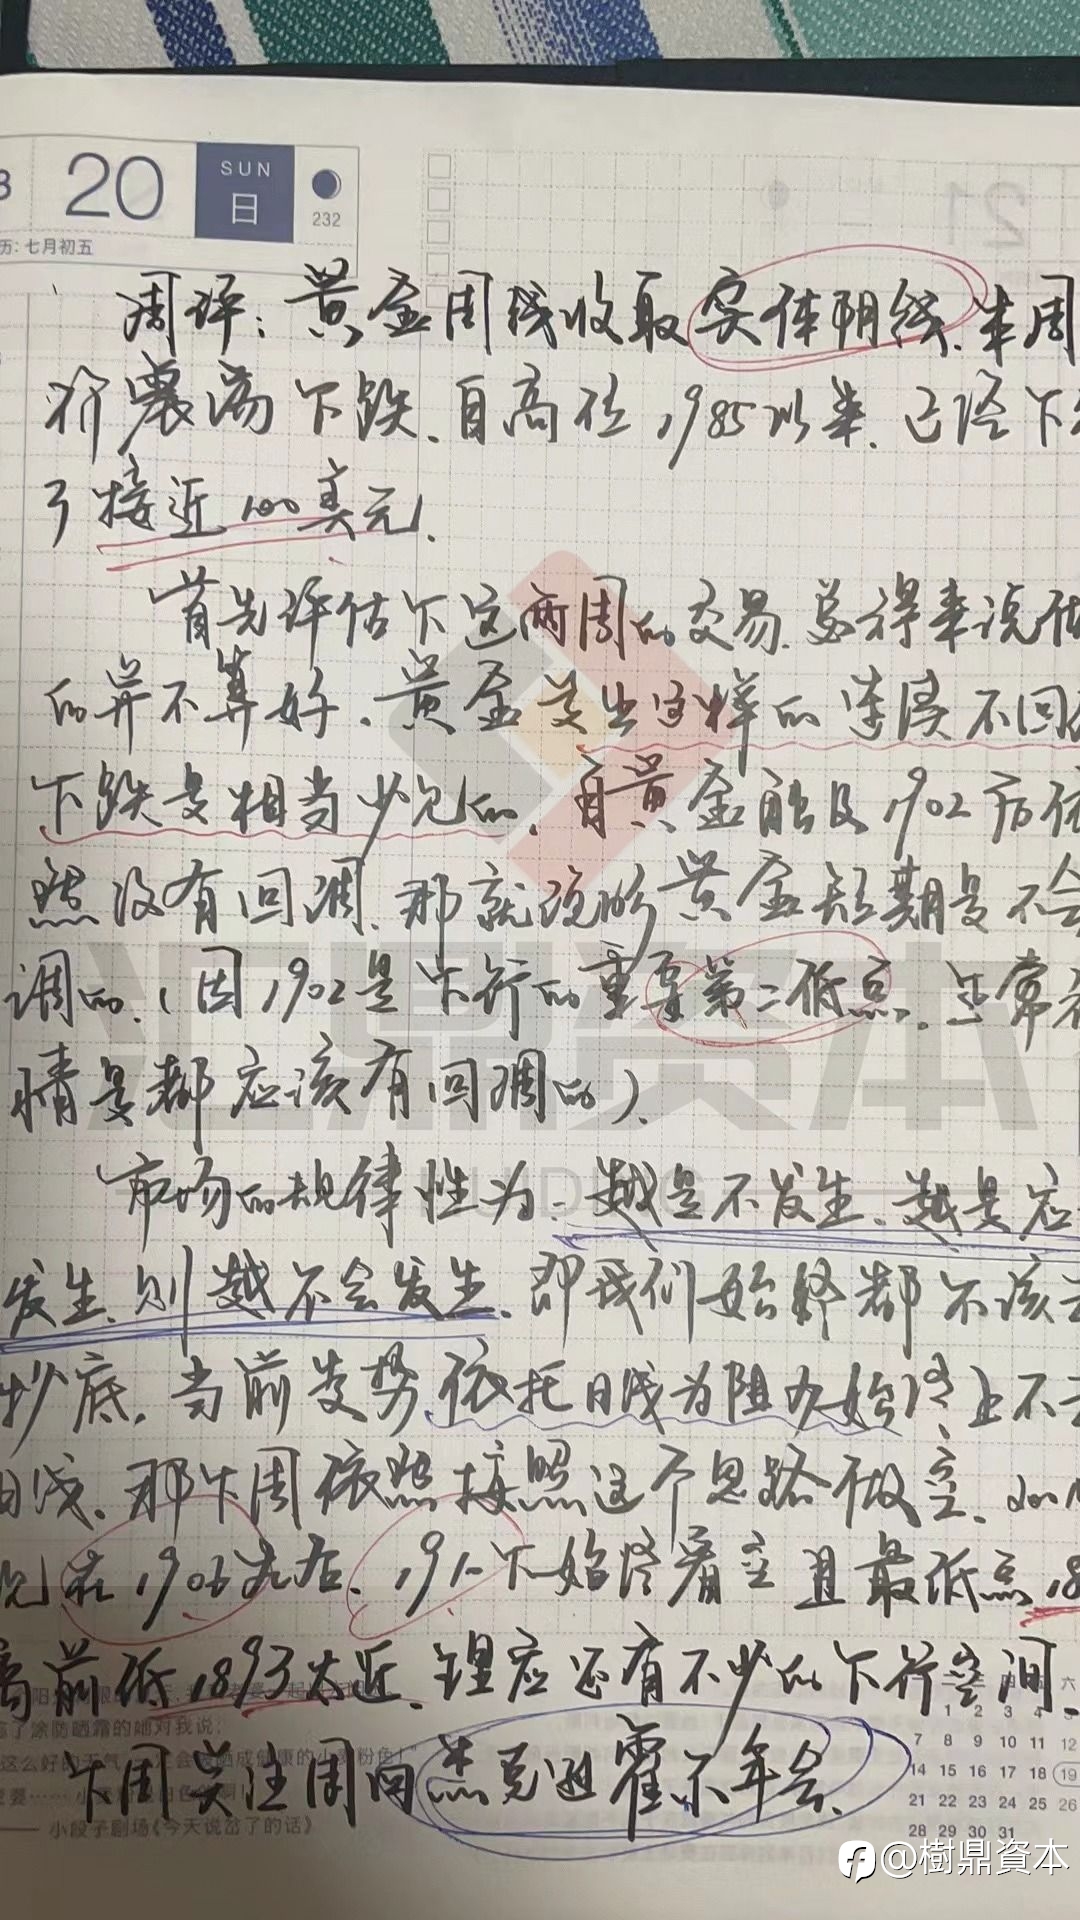 20
SUN
日
232
历: 七月初五
21
周评：黄金周线收取实体阴线，本周
将震荡下跌，自高位1985以来，已经下
了接近100美元，
首先评估下这两周的交易，总得来说做
的并不算好，黄金发生这样的连续不回
下跌是相当少见的，自黄金触及1902后依
然没有回调，那就说明黄金短期是不会
调的，（因1902是下行的重要第二低点，正常
情是都应该有回调的），
市场的规律性为：越是不发生，越是应
发生，则越不会发生，即我们始终都不该去
抄底，当前走势，依托日线为阻力始终上不去
日线，那下周依然按照这个思路做空，
现在1906左右，191下始终看空且最低点18
离前低1893太近，理应还有不少的下行空间，
下周关注周间杰克逊霍尔年会，
忘了涂防晒霜的她对我说：
小段子剧场《今天说岔了的话》
六
1 2 3 4
7 8 9 10 11 12
14 15 16 17 18 19
21 22 23 24 25 26
28 29 30 31
汇鼎资本
HUIDING
@樹鼎資本